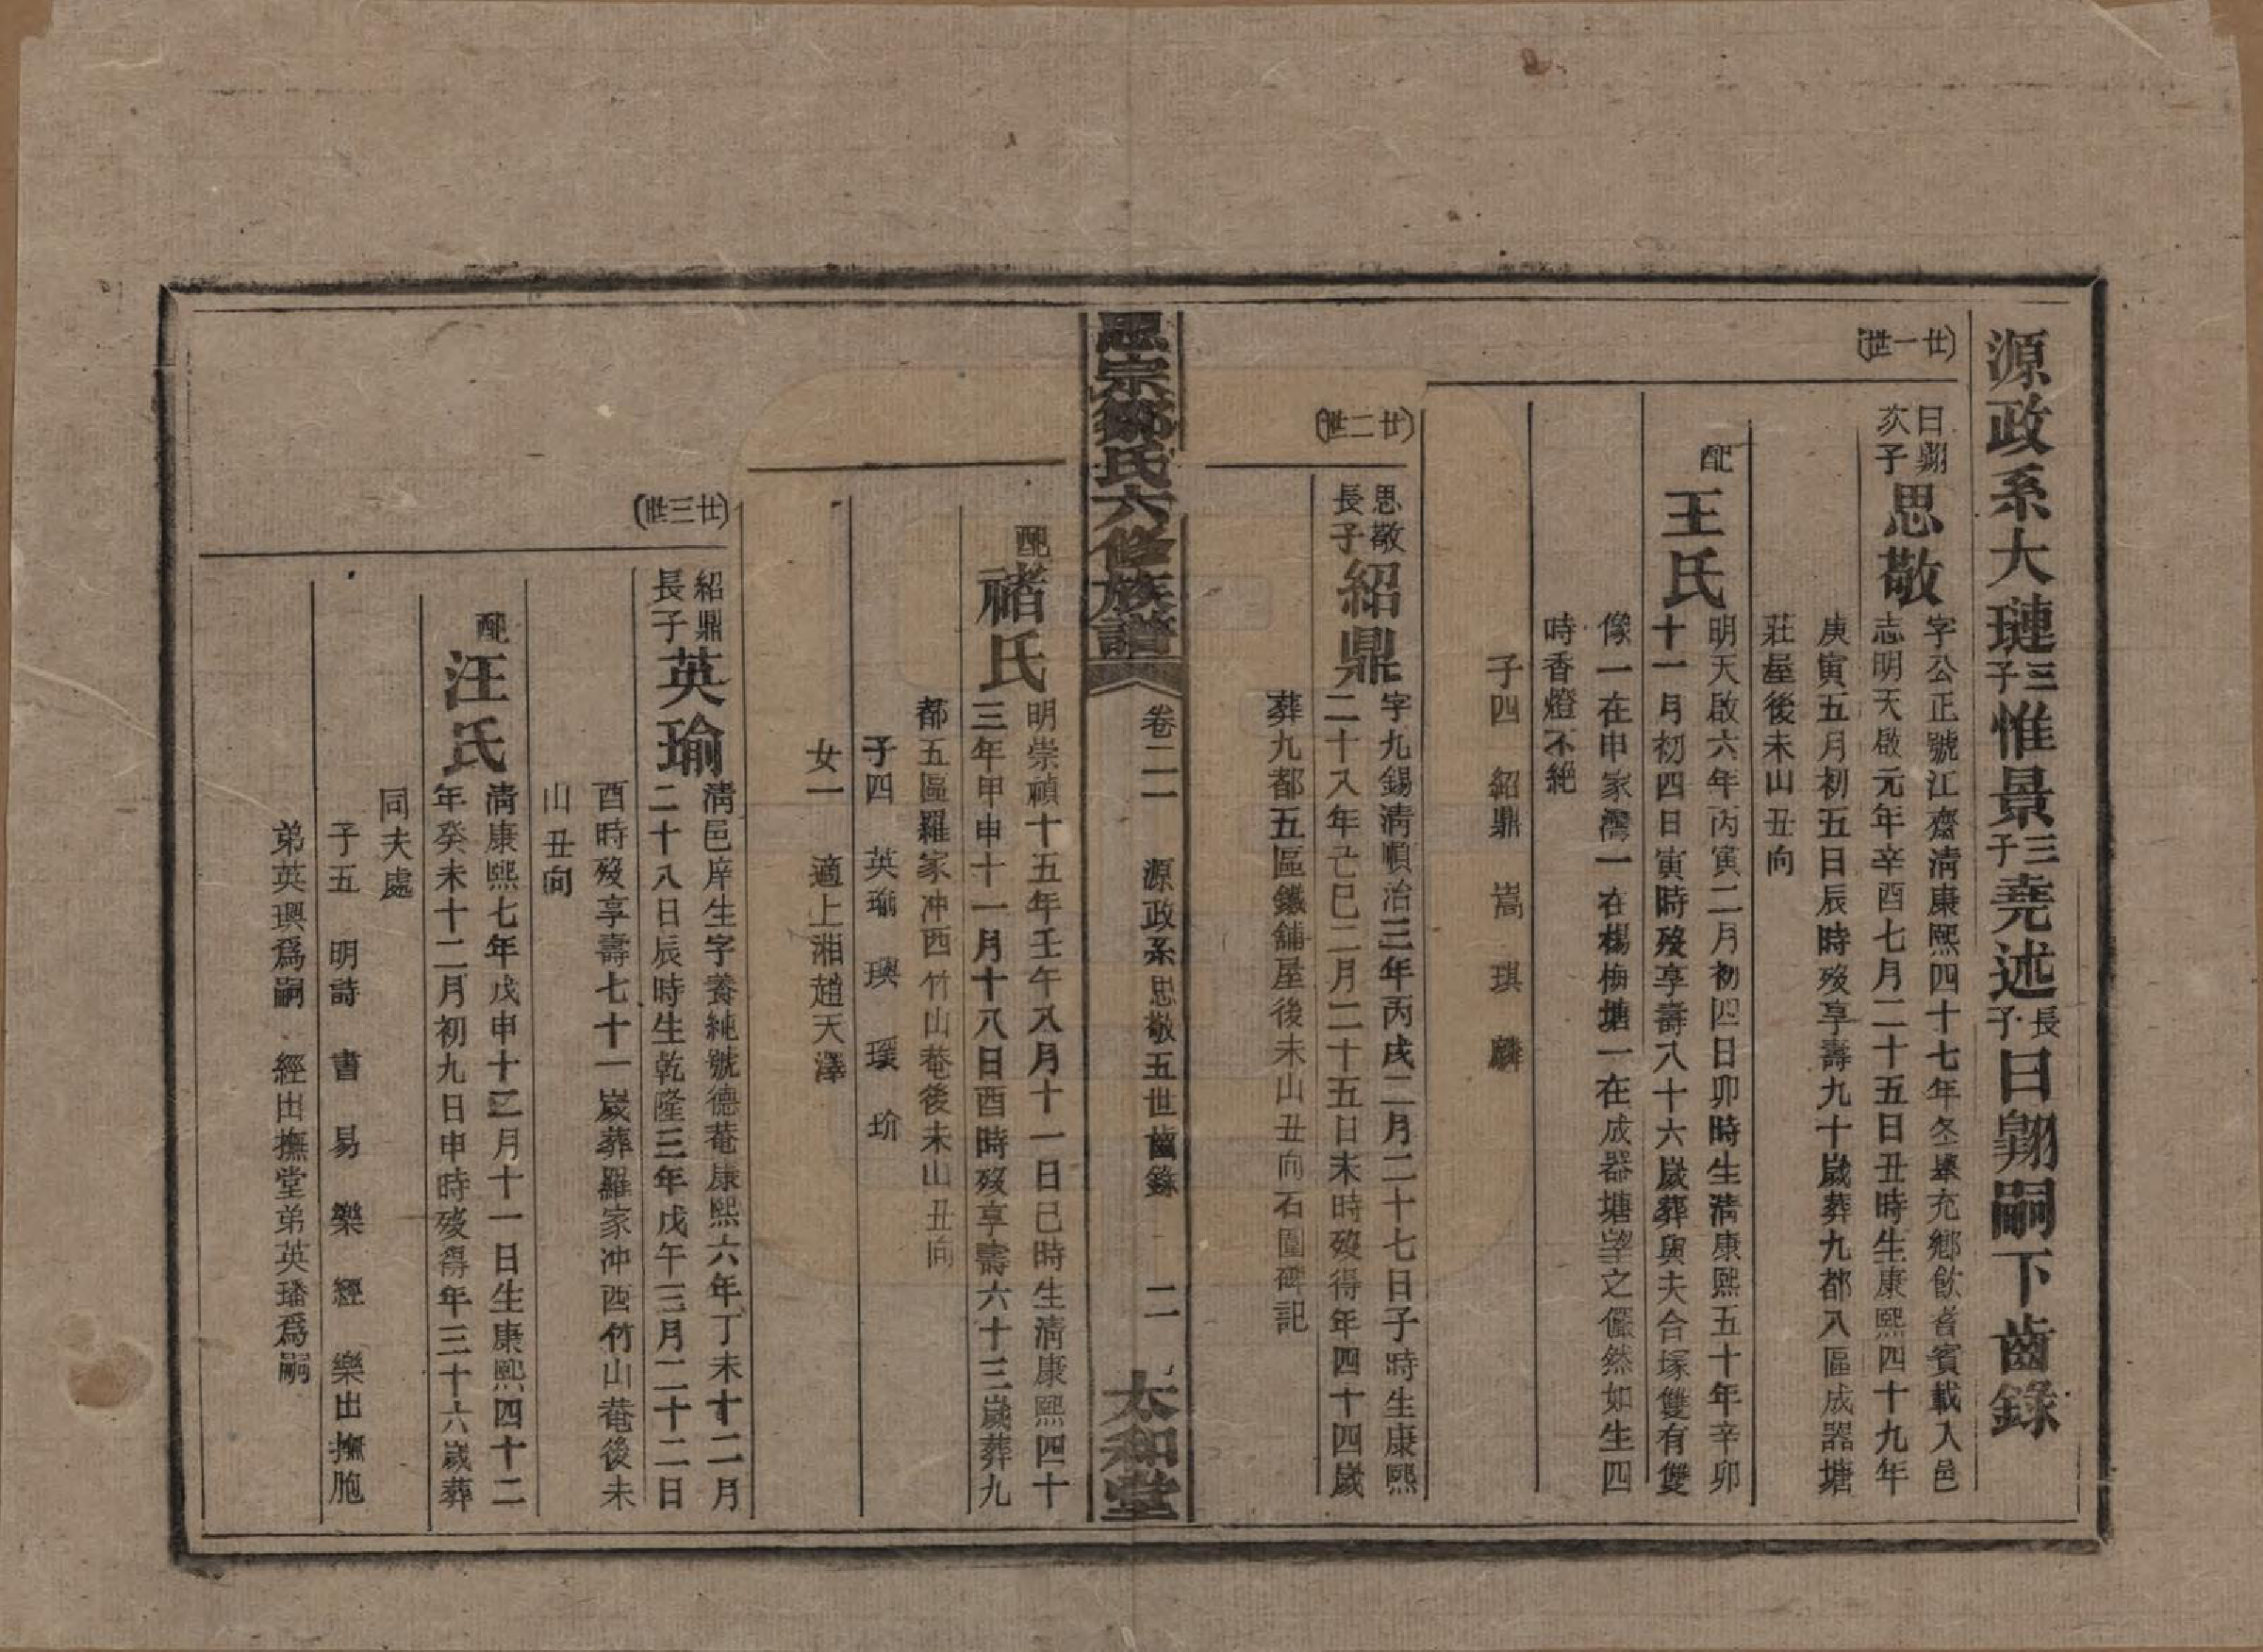 源政系大璉三子惟景三子堯述長子曰翶嗣下齒錄
廿一世
曰翶次子思敬
字公正號江齋淸康熙四十七年冬舉充鄉飮耆賓載入邑
志明天啟元年辛酉七月二十五日丑時生康熙四十九年
庚寅五月初五日辰時歿享壽九十歲葬九都八區成器塘
莊屋後未山丑向
配王氏
明天啟六年丙寅二月初四日卯時生淸康熙五十年辛卯
十一月初四日寅時歿享壽八十六歲葬與夫合塚雙有雙
像一在申家灣一在楊梅塘一在成器塘望之儼然如生四
時香燈不絕
子四 紹鼎 嵩 琪 麟
廿二世
思敬長子紹鼎
字九錫淸順治三年丙戌二月二十七日子時生康熙
二十八年己巳二月二十五日未時歿得年四十四歲
葬九都五區鐵舖屋後未山丑向石圍碑記
思宗鄒氏六修族譜
卷二 源政系思敬五世齒錄 二
太和堂
配禇氏
明崇禎十五年壬午八月十一日巳時生淸康熙四十
三年甲申十一月十八日酉時歿享壽六十三歲葬九
都五區羅家冲西竹山菴後未山丑向
子四 英瑜 璵 瑗 玠
女一 適上湘趙天澤
廿三世
紹鼎長子英瑜
淸邑庠生字養純號德菴康熙六年丁未十二月
二十八日辰時生乾隆三年戊午三月二十二日
酉時歿享壽七十一歲葬羅家冲西竹山菴後未
山丑向
配汪氏
淸康熙七年戊申十二月十一日生康熙四十二
年癸未十二月初九日申時歿得年三十六歲葬
同夫處
子五 明詩 書 易 樂 經 樂出撫胞
弟英璵爲嗣 經出撫堂弟英璠爲嗣